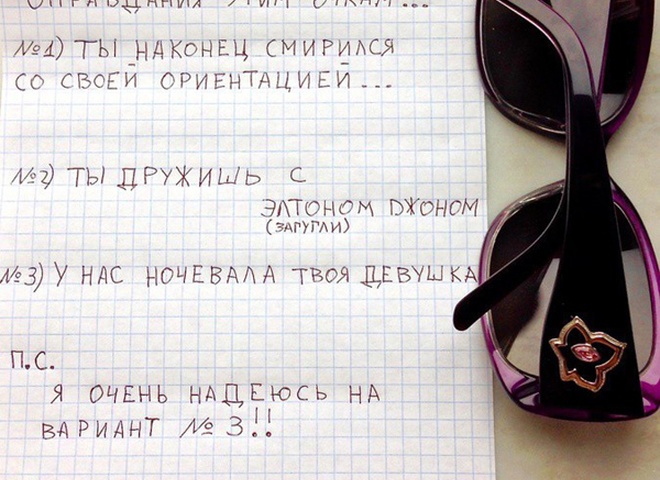 ОПРАВДАНИЯ ЭТИМ ОЧКАМ...
№1) ТЫ НАКОНЕЦ СМИРИЛСЯ
СО СВОЕЙ ОРИЕНТАЦИЕЙ...
№2) ТЫ ДРУЖИШЬ С
ЭЛТОНОМ ДЖОНОМ
(ЗАГУГЛИ)
№3) У НАС НОЧЕВАЛА ТВОЯ ДЕВУШКА
П.С.
Я ОЧЕНЬ НАДЕЮСЬ НА
ВАРИАНТ №3!!